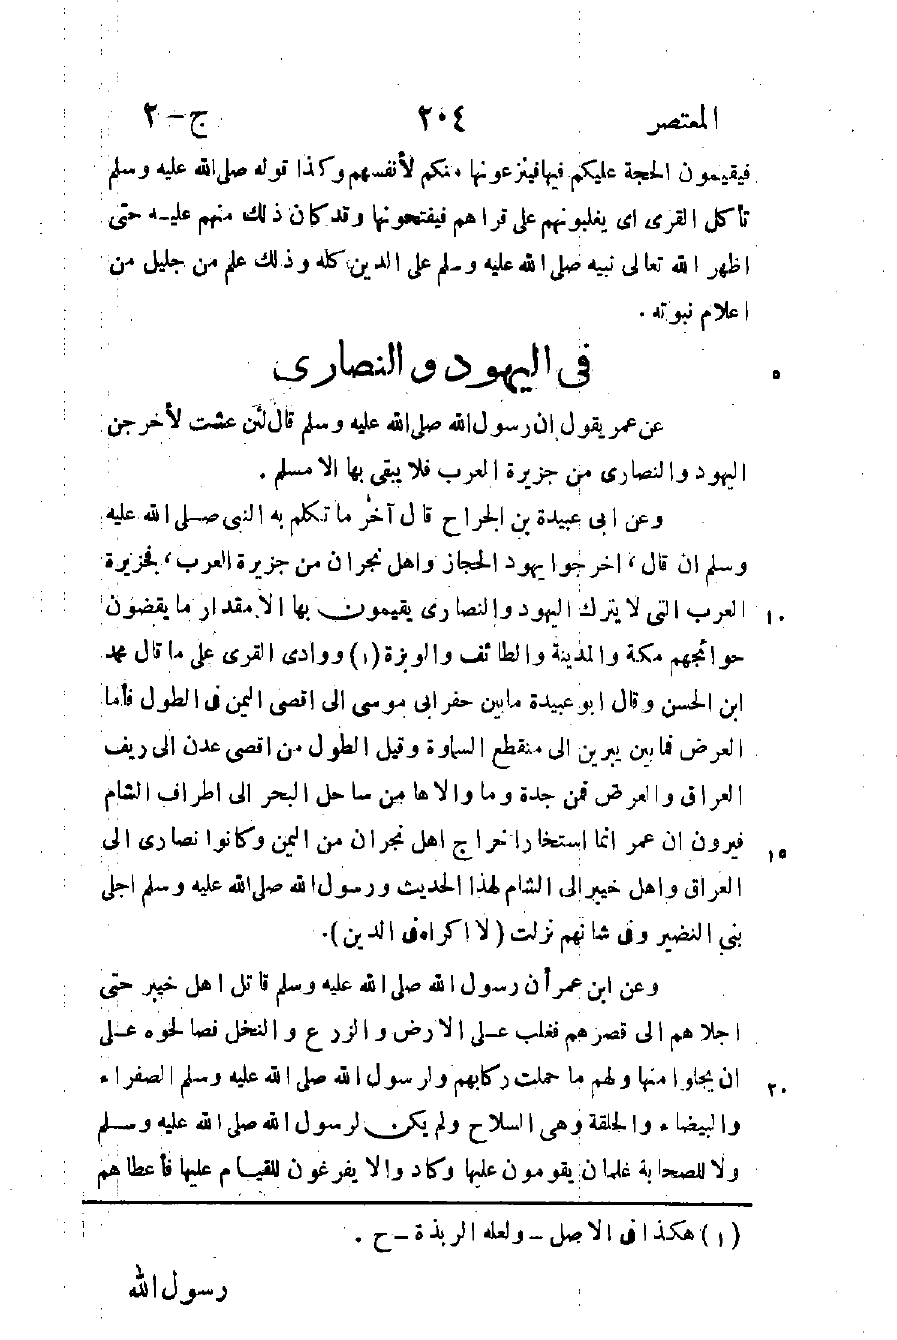 المعتصر ٢٠٤ ج-٢
فيقيمون الحجة عليكم فيها فينزعونها منكم لأنفسهم وكذا قوله صلى الله عليه وسلم
تأكل القرى اى يغلبونهم على قراهم فيفتحونها وقد كان ذلك منهم عليه حتى
اظهر الله تعالى نبيه صلى الله عليه وسلم على الدين كله وذلك علم من جليل من
اعلام نبوته .
فى اليهود والنصارى ٥
عن عمر يقول ان رسول الله صلى الله عليه وسلم قال لئن عشت لأخرجن
اليهود والنصارى من جزيرة العرب فلا يبقى بها الا مسلم .
وعن ابى عبيدة بن الجراح قال آخر ما تكلم به النبى صلى الله عليه
وسلم ان قال ، اخرجوا يهود الحجاز واهل نجران من جزيرة العرب ، فجزيرة
العرب التى لا يترك اليهود والنصارى يقيمون بها الا مقدار ما يقضون ١٠
حوائجهم مكة والمدينة والطائف والوبزة (١) ووادى القرى على ما قال محمد
ابن الحسن وقال ابو عبيدة ما بين حفر ابى موسى الى اقصى اليمن فى الطول فأما
العرض فما بين يبرين الى منقطع السماوة وقيل الطول من اقصى عدن الى ريف
العراق والعرض فمن جدة وما والاها من ساحل البحر الى اطراف الشام
فيرون ان عمر انما استخار اخراج اهل نجران من اليمن وكانوا نصارى الى ١٥
العراق واهل خيبر الى الشام لهذا الحديث ورسول الله صلى الله عليه وسلم اجلى
بني النضير وفى شانهم نزلت (لا اكراه فى الدين).
وعن ابن عمر أن رسول الله صلى الله عليه وسلم قاتل اهل خيبر حتى
اجلاهم الى قصرهم فغلب على الارض والزرع والنخل فصالحوه على
ان يجلوا منها ولهم ما حملت ركابهم ولرسول الله صلى الله عليه وسلم الصفراء ٢٠
والبيضاء والحلقة وهى السلاح ولم يكن لرسول الله صلى الله عليه وسلم
ولا للصحابة غلمان يقومون عليها وكادوا لا يفرغون للقيام عليها فأعطاهم
(١) هكذا فى الاصل - ولعله الربذة - ح .
رسول الله